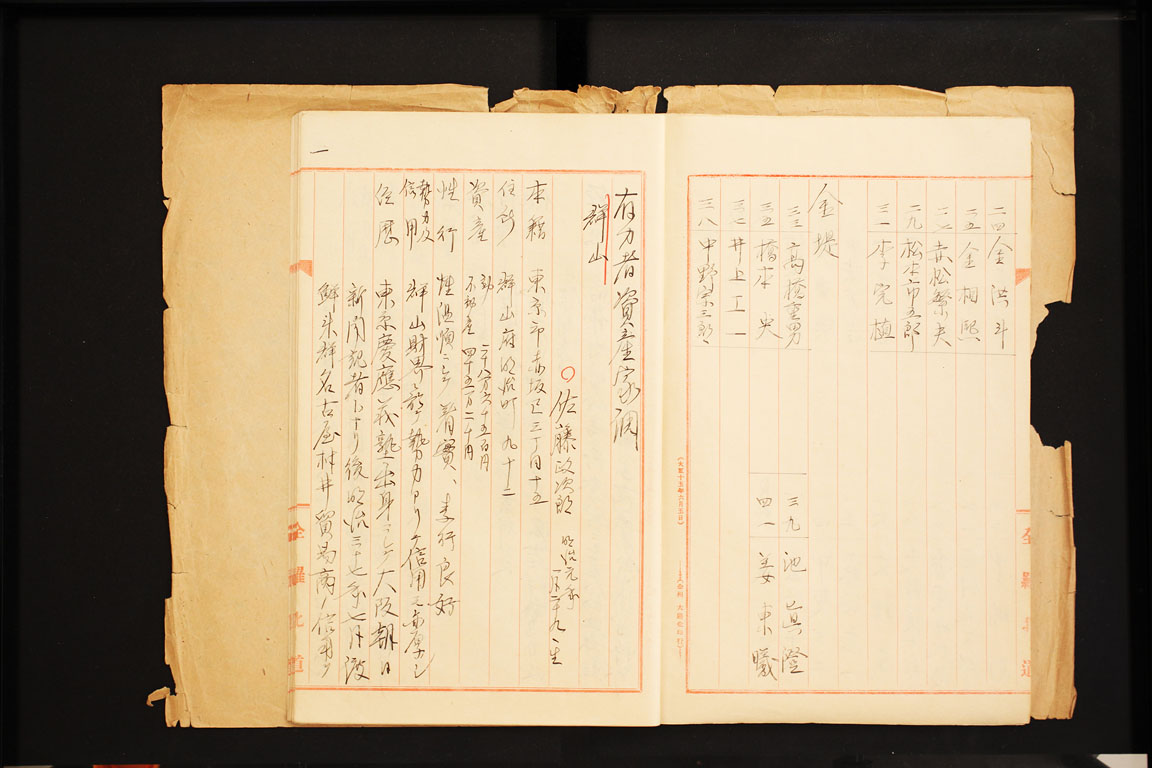 二四 金洪斗
二五 金相熙
赤松繁夫
二九 松本市五郎
三一 李完植
金堤
三三 高橋重男 三九 池眞澄
三五 橋本央 四一 姜東曦
三七 井上工一
三八 中野宗三郎
全羅北道
有力者資産家調
群山
佐藤政次郎 明治元年 一月二十九日生
本籍 東京市赤坂区三丁目十五
住所 群山府明治町九十二
資産 動 二十八万六千五百円
不動産 四十五万二千円
性行 性温順ニシテ着実、素行良好
勢力及信用 群山財界ニ於テ勢力アリテ信用モ亦厚シ
経歴 東京慶應義塾出身ニシテ大阪朝日
新聞記者トナリ後明治三十七年七月渡
鮮 群名古屋村井貿易商ノ信用ヲ
一
全羅北道